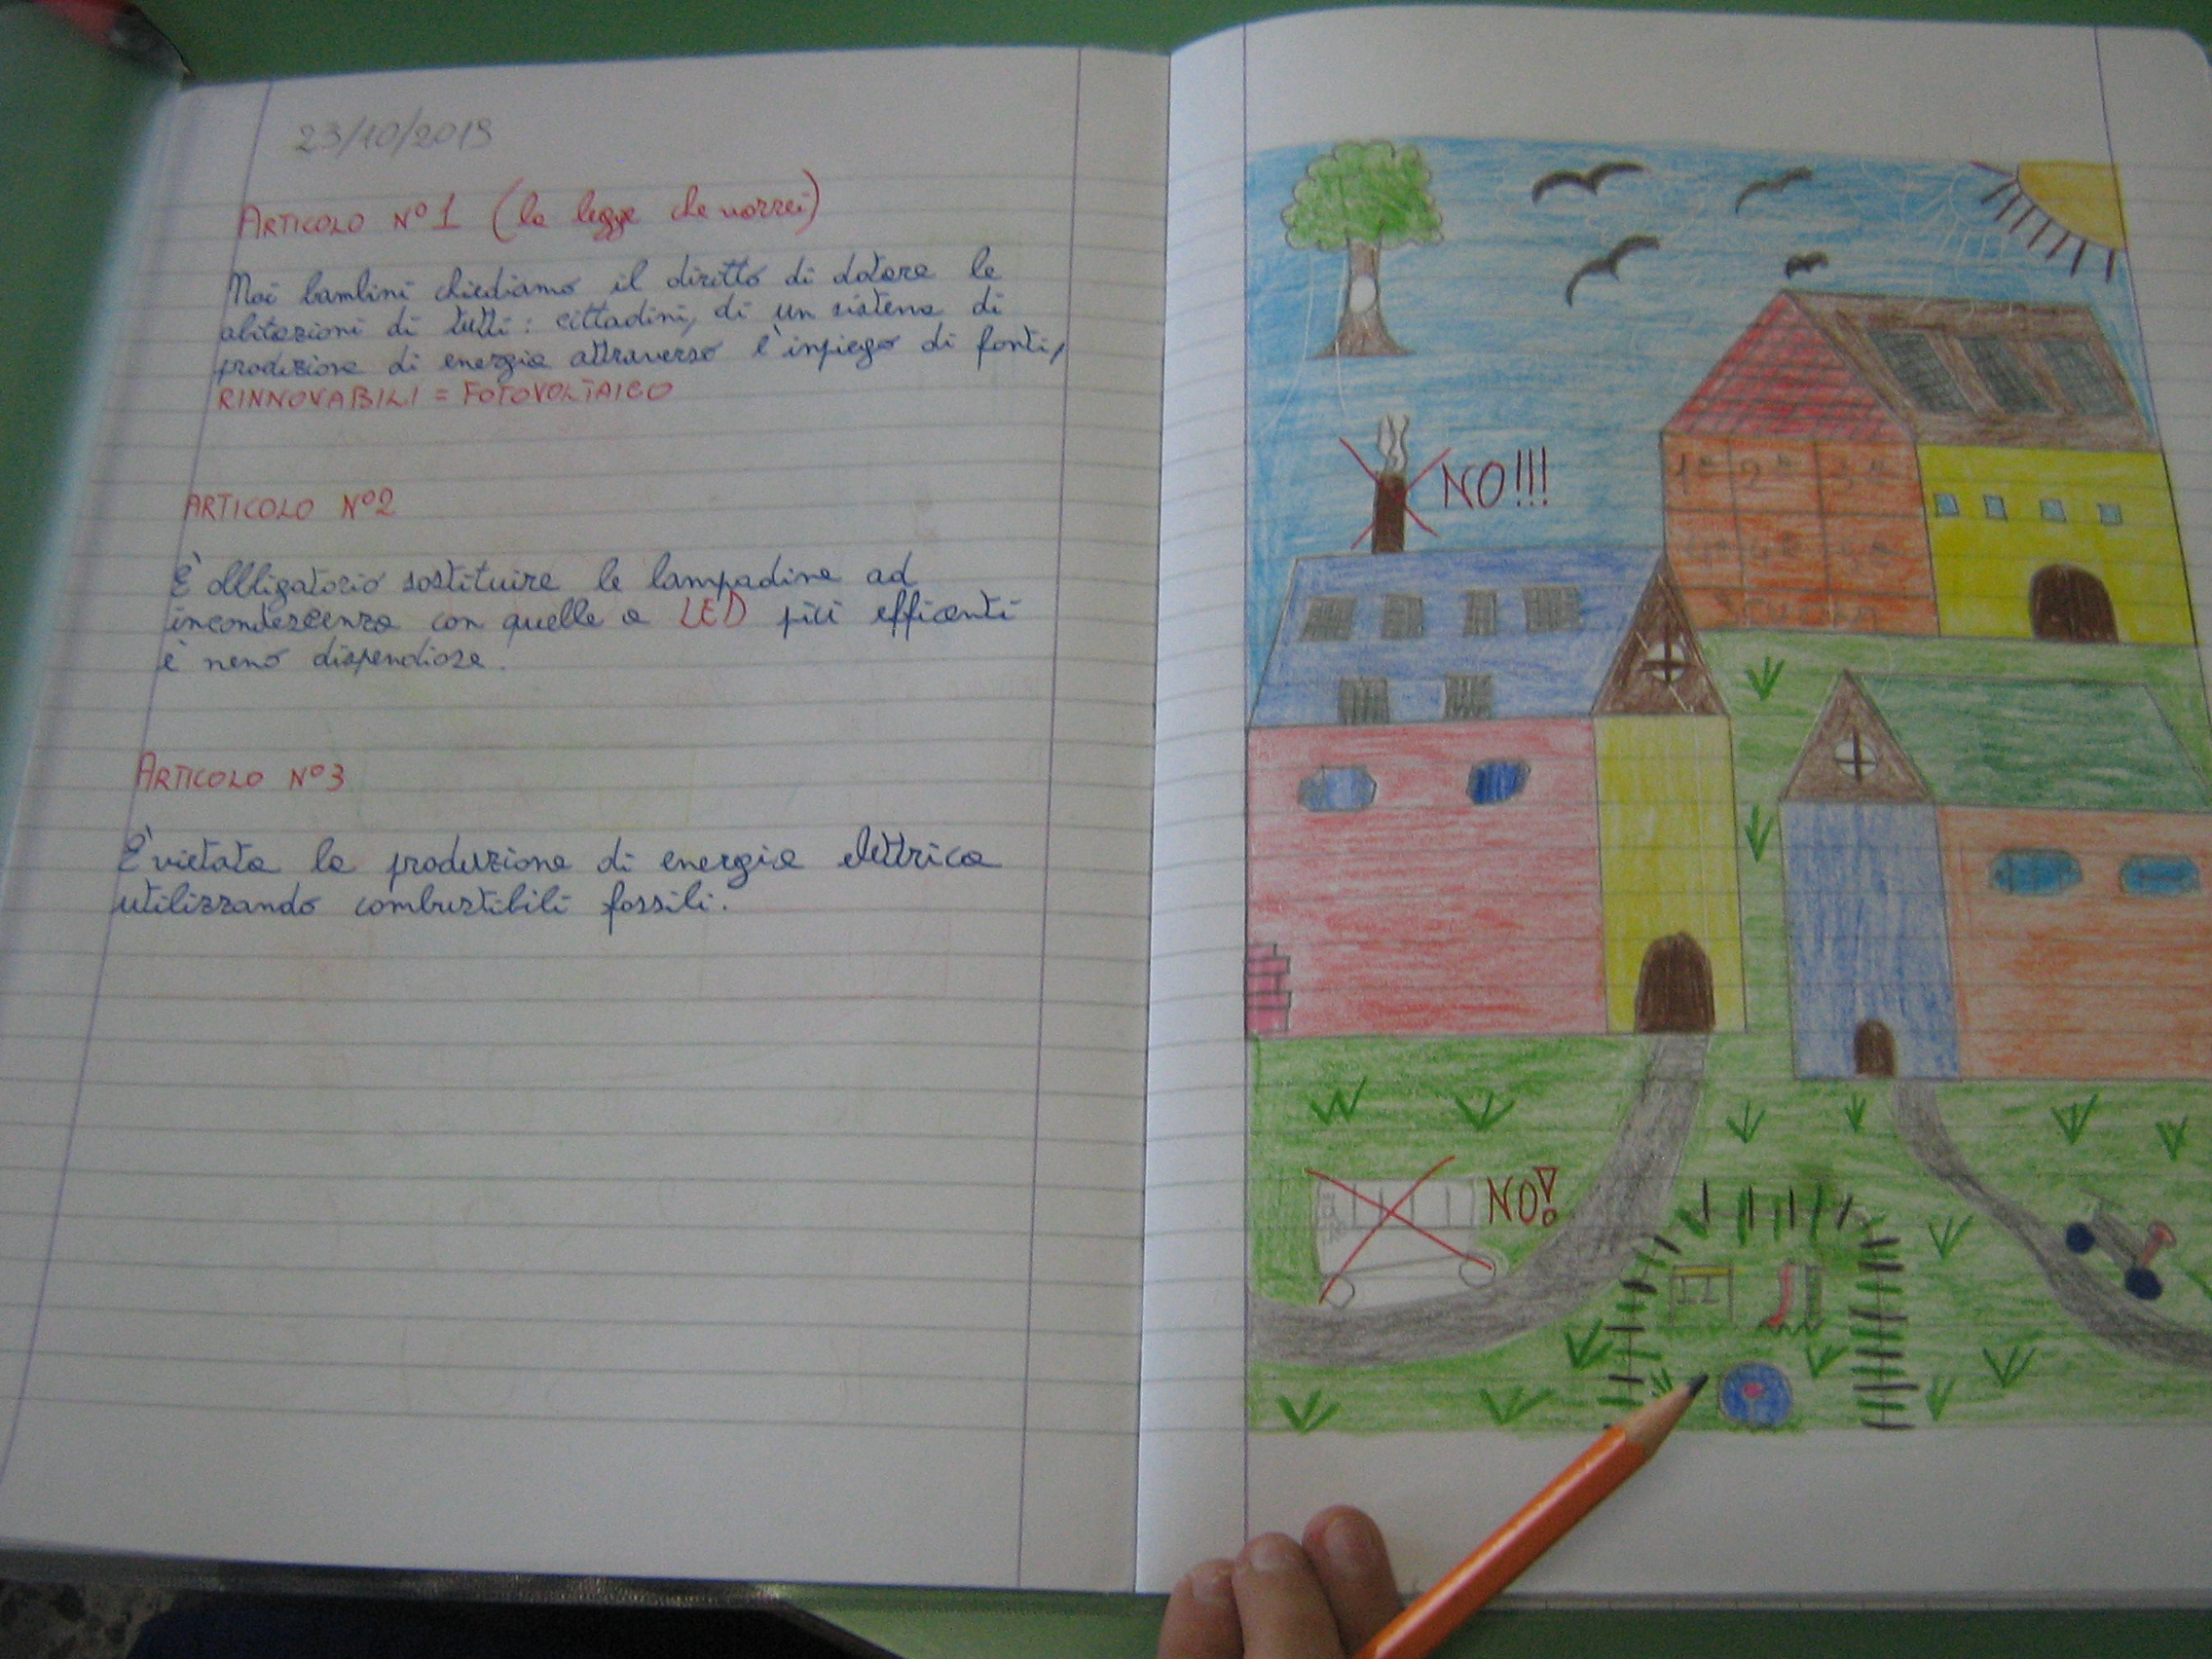 23/10/2019
ARTICOLO N°1 (la legge che vorrei)
Noi bambini chiediamo il diritto di dotare le
abitazioni di tutti: cittadini, di un sistema di
produzione di energia attraverso l'impiego di fonti,
RINNOVABILI = FOTOVOLTAICO
ARTICOLO N°2
È obbligatorio sostituire le lampadine ad
incondescenza con quelle a LED più efficenti
e meno dispendiose.
ARTICOLO N°3
È vietata la produzione di energia elettrica
utilizzando combustibili fossili.
NO!!!
1ª 2ª 3ª
SCUOLA
NO!